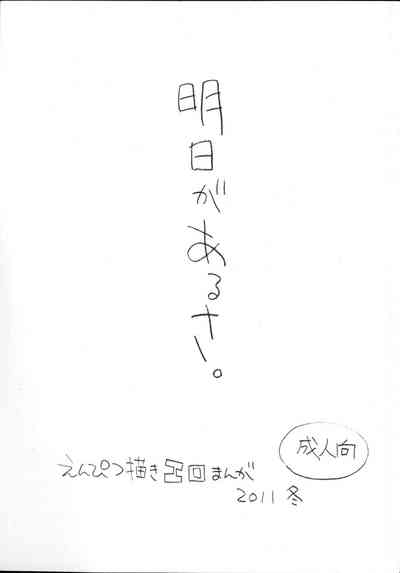 明日があるさ。
成人向
えんぴつ描き まんが
2011 冬